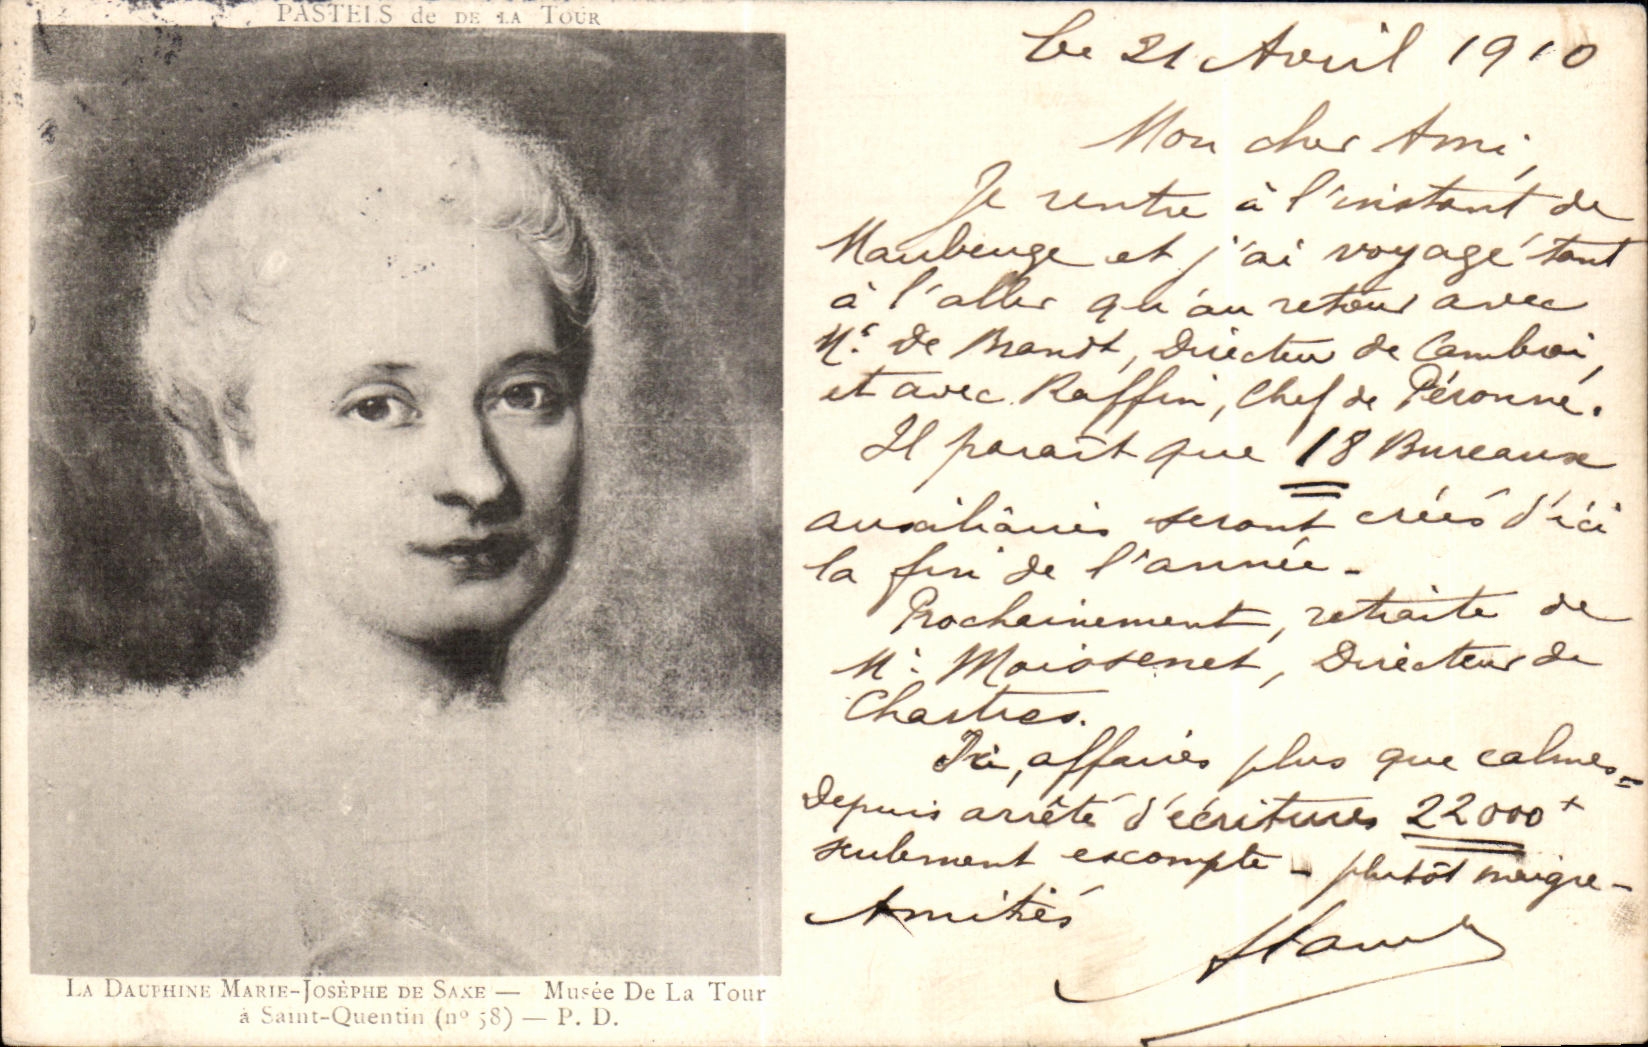 PASTELS de DE LA TOUR
LA DAUPHINE MARIE-JOSÈPHE DE SAXE — Musée De La Tour
à Saint-Quentin (nº 58) — P. D.
Le 21 Avril 1910
Mon cher Ami,
Je rentre à l'instant de
Maubeuge et j'ai voyagé tant
à l'aller qu'au retour avec
Mr. De Brandt, Directeur de Cambrai,
et avec Raffin, Chef de Péronne.
Il paraît que 18 Bureaux
auxiliaires seront créés d'ici
la fin de l'année.
Prochainement, retraite de
Mr. Moissenet, Directeur de
Chartres.
Ici, affaires plus que calmes=
Depuis arrêté d'écritures 22000+
seulement escompte - plutôt maigre-
Amitiés